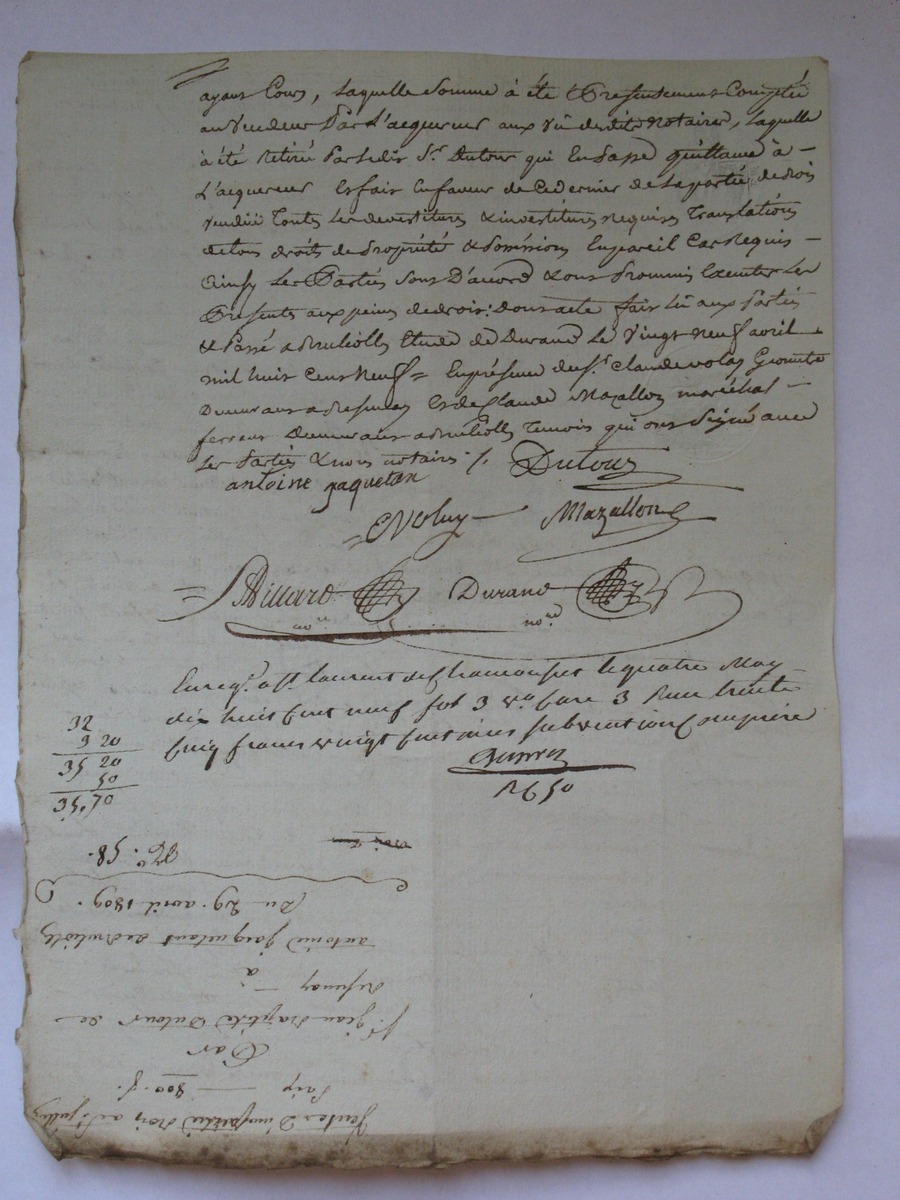 ayant Cours, laquelle Somme à été Presentement Comptée
au Vendeur Par L'acquereur aux vû desdits notaires, laquelle
à été Retiré Par ledit Sr. Dutour qui En Passe quittance à
L'acquereur Et fait En faveur de Ce dernier de la partie de bois
vendüe Toutes les devestitures & investitures requises Translations
de tous droits de Propriété & Possession En pareil Cas Requis
Ainsy les Parties Sont D'accord & ont Promis Executer les
Presentes aux peines de droit : Dont acte fait lû aux Parties
& Passé Etude de Durand Le Vingt Neuf avril
mil huit Cent Neuf = En présence de Sr. Claude
Demeurant Et de Claude Mazallon maréchal
ferrant Demeurant Temoins qui ont Signé avec
les Parties & nous notaires ./. Dutour
antoine jaquetan
Mazallon
= Billard Durand
nore nore
Enregé. a St. laurent de Chamousset le quatre May
dix huit Cent neuf fol 3 vo Case 3 Reçu trente
Cinq francs vingt Centimes subvention Comprise
32
3 20
35 20
50
35,70
R 6 50
No. 58.
Du 29. avril 1809.
antoine jacquetant
à
Sr. jean Baptiste Dutour de
Par
Prix — 800. f.
Ventes D'une partie bois